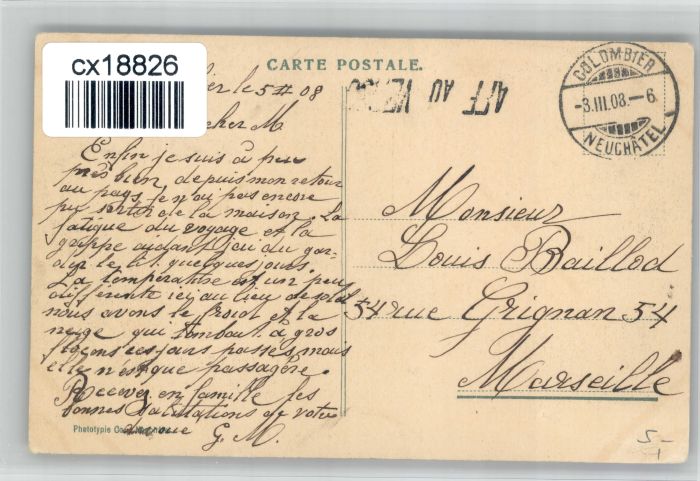 cx18826
CARTE POSTALE.
le 5 III 08
cher M
Enfin je suis à peu
près bien, depuis mon retour
au pays, je n'ai pas encore
pu sortir de la maison. La
fatigue du voyage et la
grippe aidant j'ai du gar-
der le lit quelques jours.
La température est un peu
différente ici au lieu de soleil
nous avons le froid et la
neige qui tombait à gros
flocons ces jours passés, mais
elle n'est que passagère.
Recevez en famille les
bonnes salutations de votre
G. M.
Phototypie Co
AFF AU VERSO
COLOMBIER
-3.III.08.-6
NEUCHÂTEL
Monsieur
Louis Baillod
54 rue Grignan 54
Marseille
5-